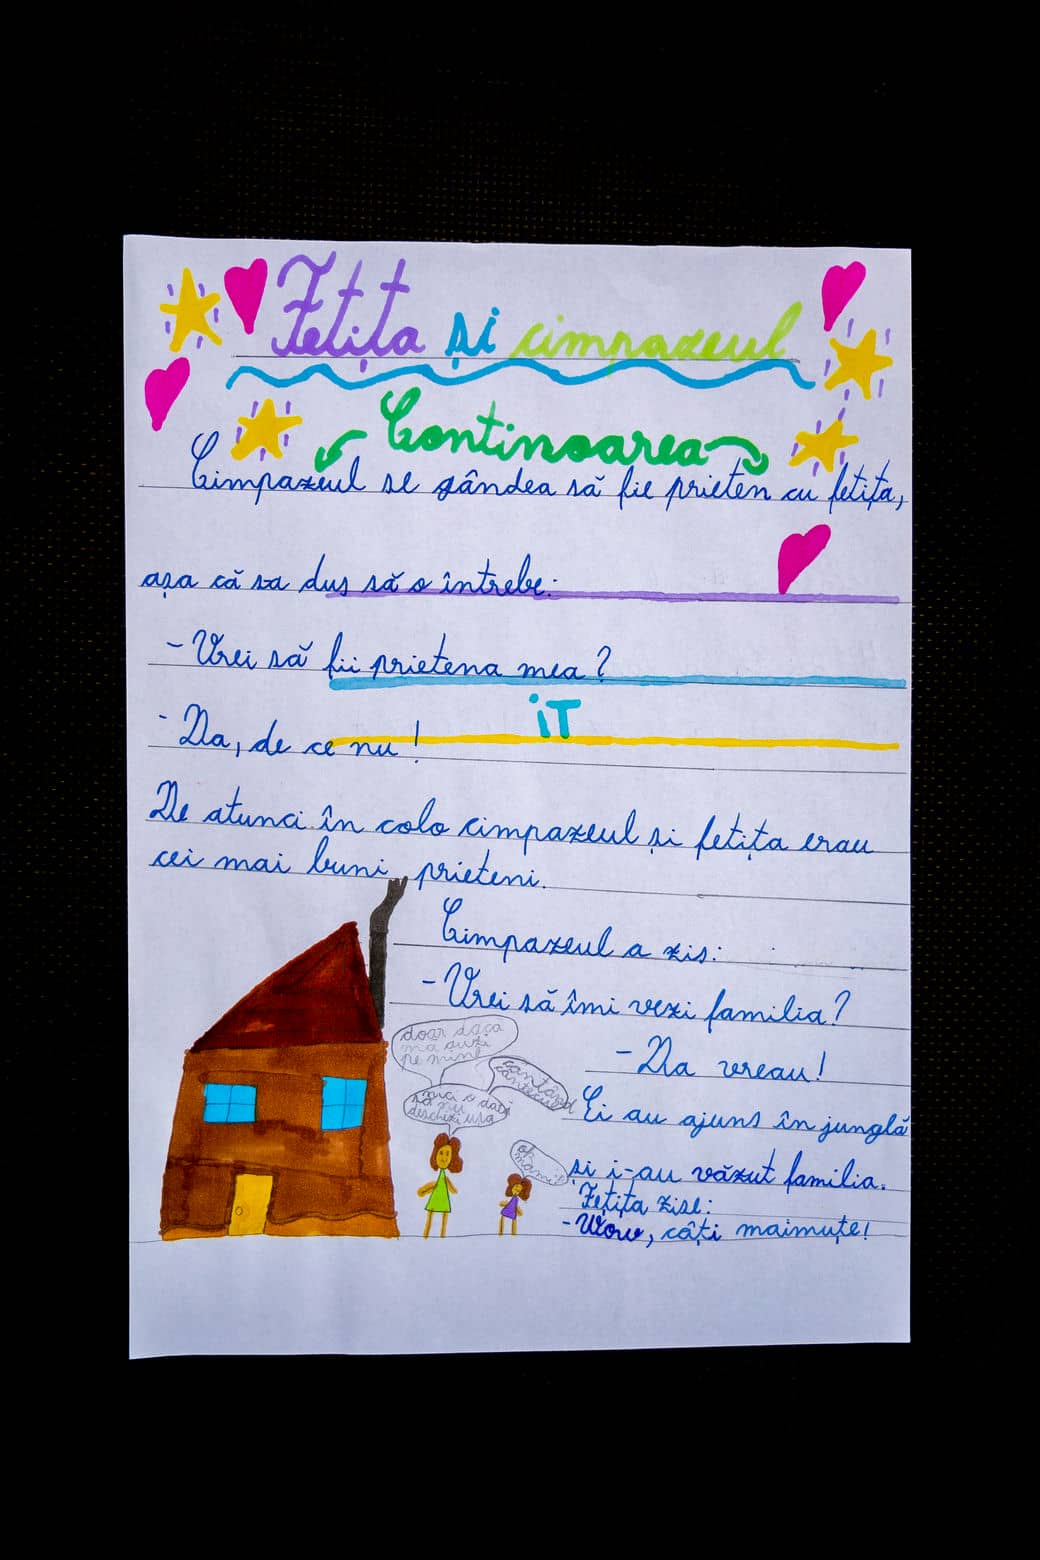 Fetița și cimpazeul
Continoarea
Cimpazeul se gândea să fie prieten cu fetița,
așa că sa dus să o întrebe:
- Vrei să fii prietena mea?
iT
- Da, de ce nu!
De atunci în colo cimpazeul și fetița erau
cei mai buni prieteni.
Cimpazeul a zis:
- Vrei să îmi vezi familia?
- Da vreau!
Ei au ajuns în junglă
și i-au văzut familia.
Fetița zise:
- Wow, câți maimuțe!
doar daca
ma auzi
pe mine
cântând
cântecul
mai o dată
să nu
deschizi usa
ok
mami